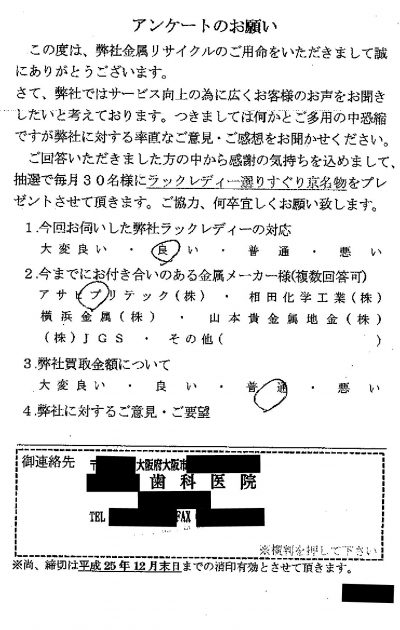 アンケートのお願い
この度は、弊社金属リサイクルのご用命をいただきまして誠
にありがとうございます。
さて、弊社ではサービス向上の為に広くお客様のお声をお聞き
したいと考えております。つきましては何かとご多用の中恐縮
ですが弊社に対する率直なご意見・ご感想をお聞かせください。
ご回答いただきました方の中から感謝の気持ちを込めまして、
抽選で毎月30名様にラックレディー選りすぐり京名物をプレ
ゼントさせて頂きます。ご協力、何卒宜しくお願い致します。
1.今回お伺いした弊社ラックレディーの対応
大変良い ・ 良い ・ 普通 ・ 悪い
2.今までにお付き合いのある金属メーカー様(複数回答可)
アサヒプリテック(株) ・ 相田化学工業(株)
横浜金属(株) ・ 山本貴金属地金(株)
(株)JGS ・ その他( )
3.弊社買取金額について
大変良い ・ 良い ・ 普通 ・ 悪い
4.弊社に対するご意見・ご要望
御連絡先 〒 大阪府大阪市
歯科医院
TEL FAX
※横判を押して下さい
※尚、締切は平成25年12月末日までの消印有効とさせて頂きます。